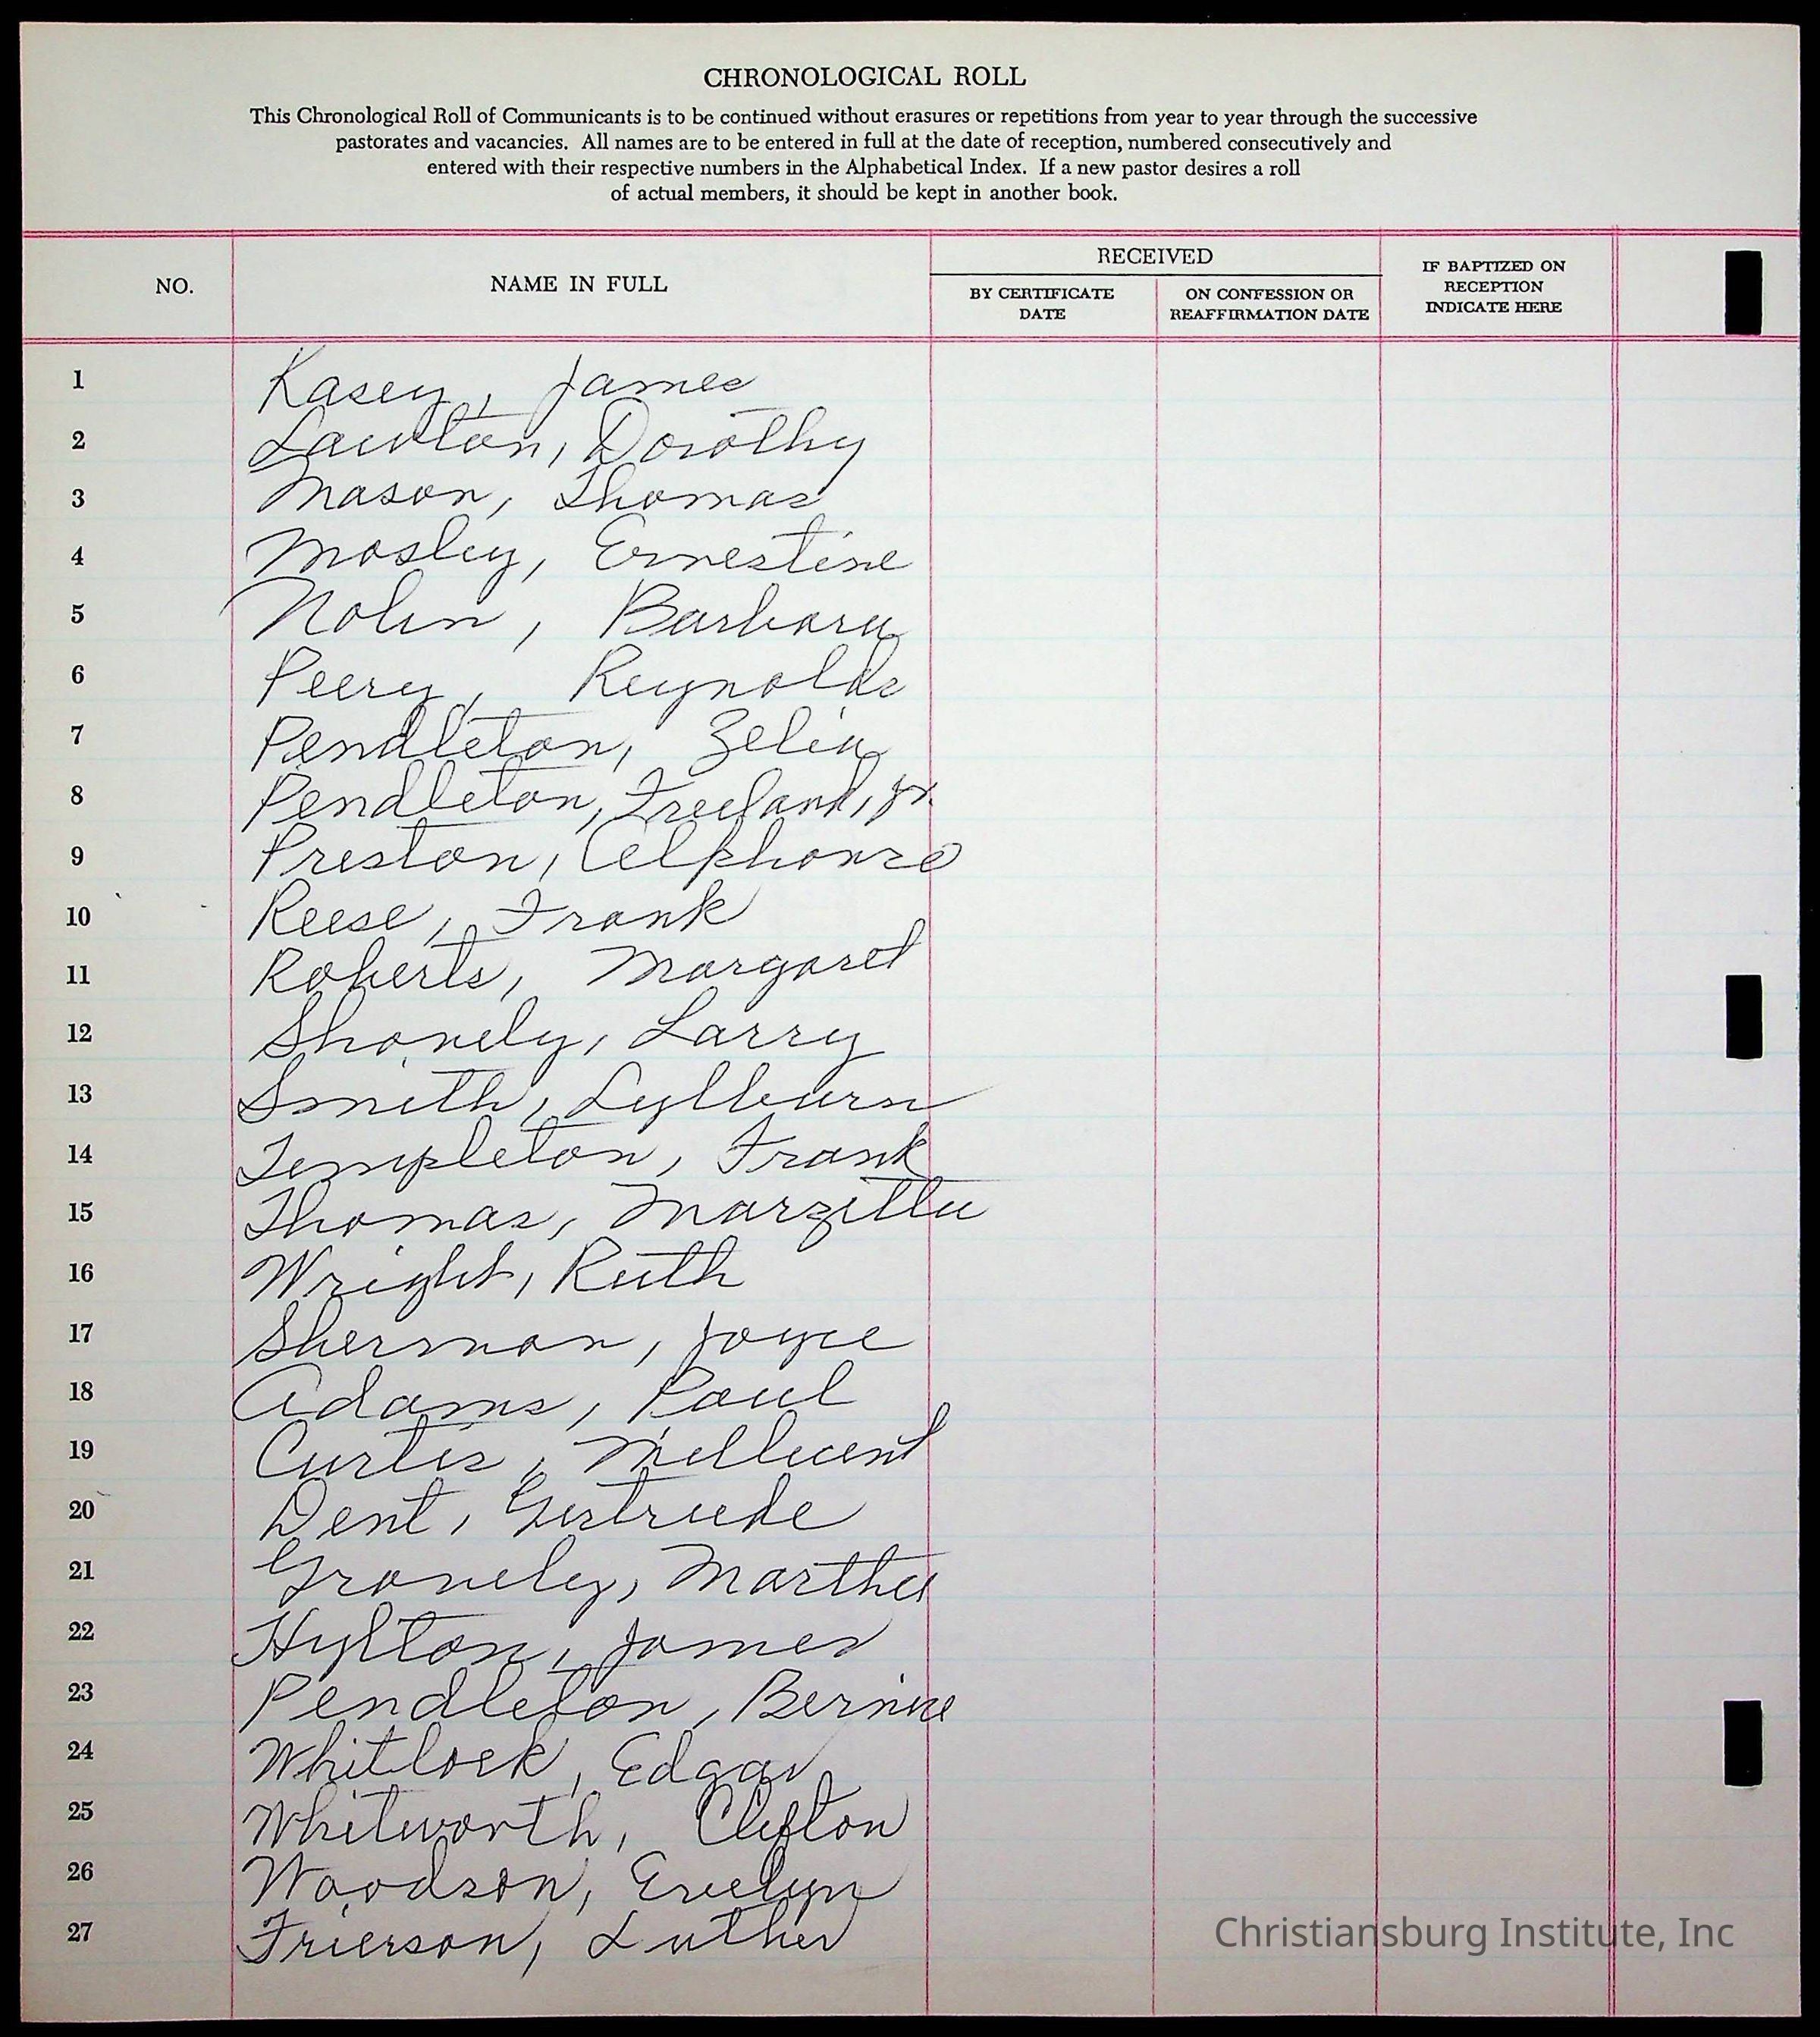 CHRONOLOGICAL ROLL
This Chronological Roll of Communicants is to be continued without erasures or repetitions from year to year through the successive
pastorates and vacancies. All names are to be entered in full at the date of reception, numbered consecutively and
entered with their respective numbers in the Alphabetical Index. If a new pastor desires a roll
of actual members, it should be kept in another book.
NO. NAME IN FULL RECEIVED BY CERTIFICATE DATE ON CONFESSION OR REAFFIRMATION DATE IF BAPTIZED ON RECEPTION INDICATE HERE
1 Kasey, James
2 Lawton, Dorothy
3 Mason, Thomas
4 Mosley, Ernestine
5 Nolen, Barbara
6 Peery, Reynolds
7 Pendleton, Zelia
8 Pendleton, Freeland, Jr.
9 Preston, Alphonso
10 Reese, Frank
11 Roberts, Margaret
12 Shavely, Larry
13 Smith, Lylburn
14 Templeton, Frank
15 Thomas, Marzitta
16 Wright, Ruth
17 Sherman, Joyce
18 Adams, Paul
19 Curtis, Millicent
20 Dent, Gertrude
21 Gravely, Martha
22 Hylton, James
23 Pendleton, Bernice
24 Whitlock, Edgar
25 Whitworth, Clifton
26 Woodson, Evelyn
27 Frierson, Luther
Christiansburg Institute, Inc